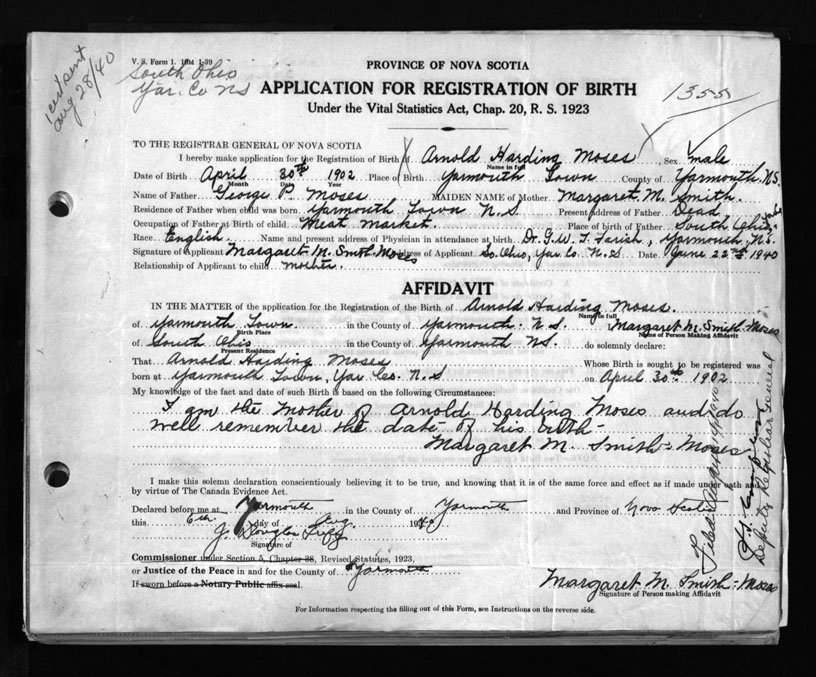 1 cert sent
Aug 28/40
V. S. Form 1. 10M 1-39
South Ohio
Yar. Co NS
PROVINCE OF NOVA SCOTIA
APPLICATION FOR REGISTRATION OF BIRTH
Under the Vital Statistics Act, Chap. 20, R. S. 1923
1355
TO THE REGISTRAR GENERAL OF NOVA SCOTIA
I hereby make application for the Registration of Birth of Arnold Harding Moses, Sex male
Name in full
Date of Birth April 30th 1902 Place of Birth Yarmouth Town County of Yarmouth N.S.
Month Date Year
Name of Father George P. Moses MAIDEN NAME of Mother Margaret M. Smith.
Residence of Father when child was born Yarmouth Town N.S. Present address of Father Dead
Occupation of Father at Birth of child Meat Market. Place of birth of Father South Ohio
Race English Name and present address of Physician in attendance at birth Dr. G. W. T. Farish, Yarmouth, N.S.
Signature of Applicant Margaret M. Smith-Moses Address of Applicant So. Ohio, Yar. Co N.S Date June 22nd 1940
Relationship of Applicant to child mother.
AFFIDAVIT
IN THE MATTER of the application for the Registration of the Birth of Arnold Harding Moses.
Name in full
of Yarmouth Town in the County of Yarmouth. N.S. Margaret M. Smith-Moses
Birth Place Name of Person Making Affidavit
of South Ohio in the County of Yarmouth NS. do solemnly declare:
Present Residence
That Arnold Harding Moses Whose Birth is sought to be registered was
born at Yarmouth Town, Yar Co. N.S on April 30th 1902
My knowledge of the fact and date of such Birth is based on the following Circumstances:
I am the Mother of Arnold Harding Moses and do
well remember the date of his birth-
Margaret M. Smith-Moses
I make this solemn declaration conscientiously believing it to be true, and knowing that it is of the same force and effect as if made under oath and
by virtue of The Canada Evidence Act.
Declared before me at Yarmouth in the County of Yarmouth and Province of Nova Scotia
this 6th day of Aug. 1940
J Douglas
Signature of
Commissioner under Section 5, Chapter 38, Revised Statutes, 1923,
or Justice of the Peace in and for the County of Yarmouth
If sworn before a Notary Public affix seal.
Margaret M. Smith-Moses
Signature of Person making Affidavit
For Information respecting the filling out of this Form, see Instructions on the reverse side.
Deputy Registrar General